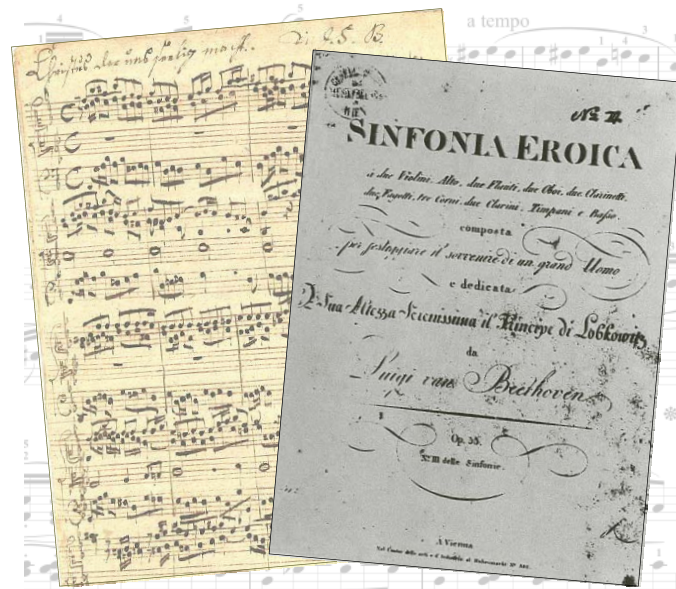 a tempo
Christus der uns seelig macht. di J. S. B.
No 4
SINFONIA EROICA
à due Violini, Alto, due Flauti, due Oboi, due Clarinetti,
due Fagotti, tre Corni, due Clarini, Timpani e Basso.
composta
per festeggiare il sovvenire di un grand Uomo
e dedicata
A Sua Altezza Serenissima il Principe di Lobkowitz
da
Luigi van Beethoven
Op. 55.
No III delle Sinfonie.
A Vienna